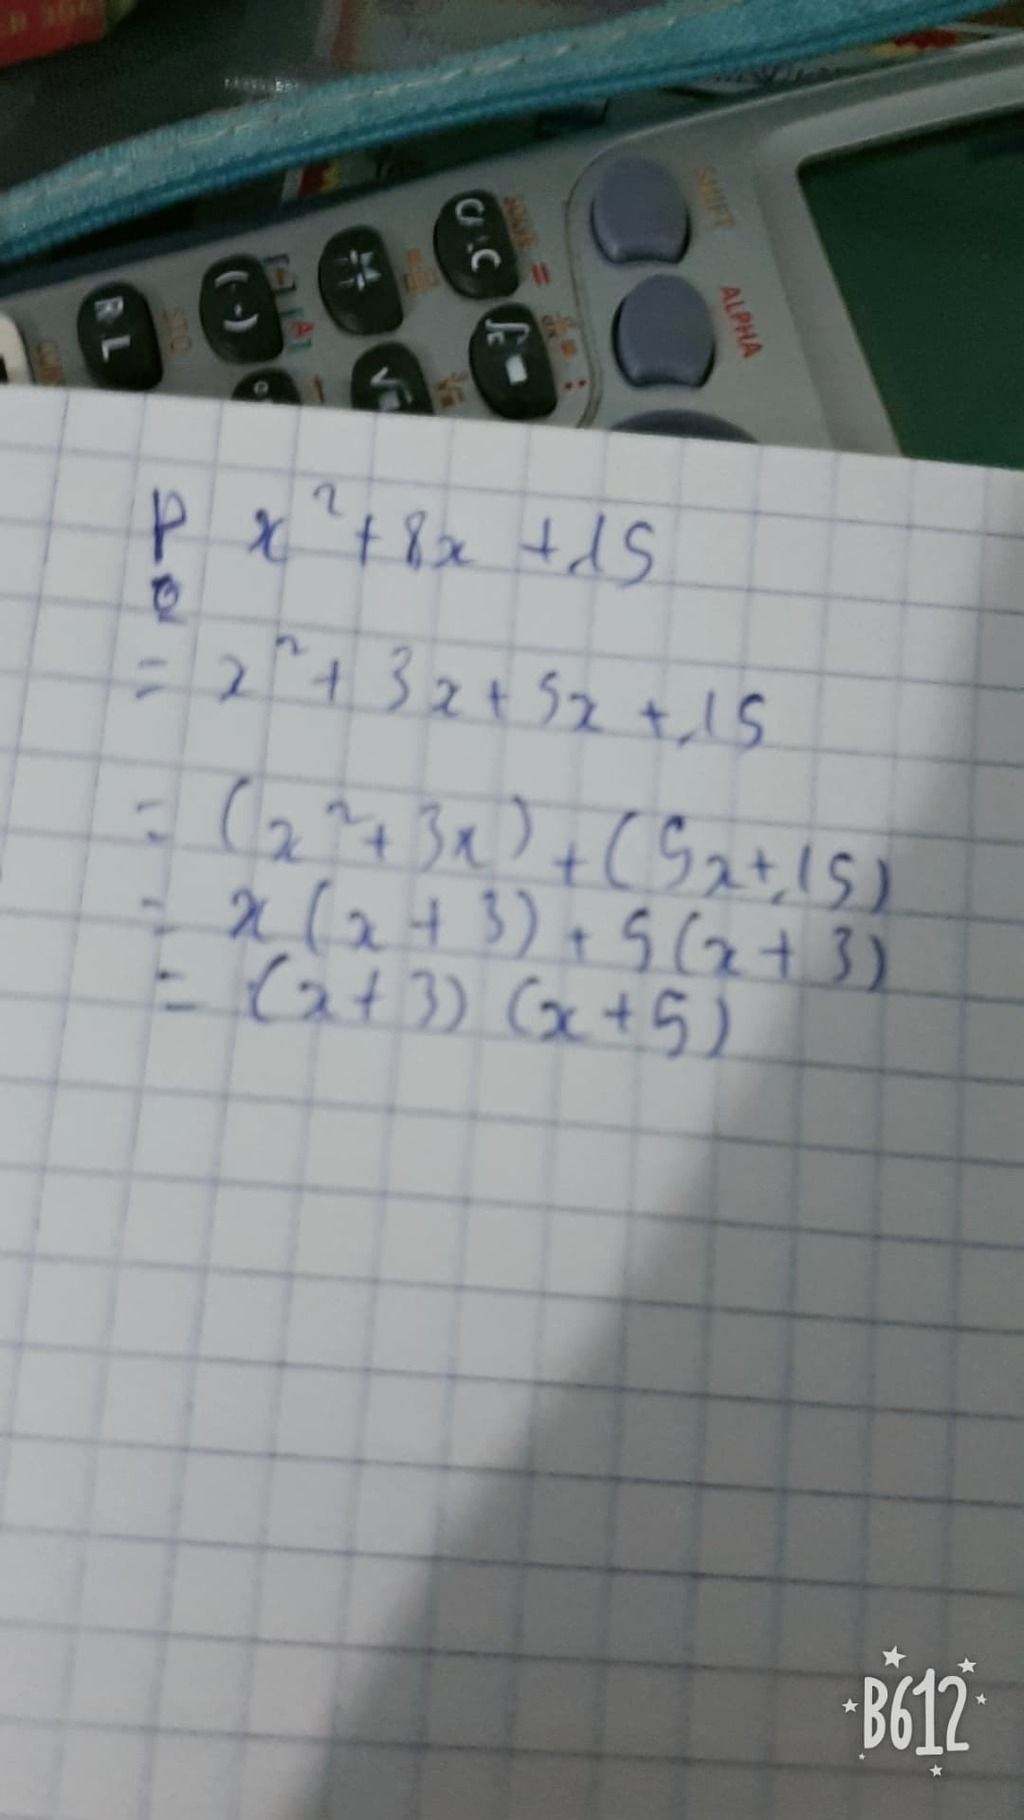 SHIFT
ALPHA
CALC
(-)
STO
P x² + 8x + 15
= x² + 3x + 5x + 15
= (x² + 3x) + (5x + 15)
= x(x + 3) + 5(x + 3)
= (x + 3) (x + 5)
B612